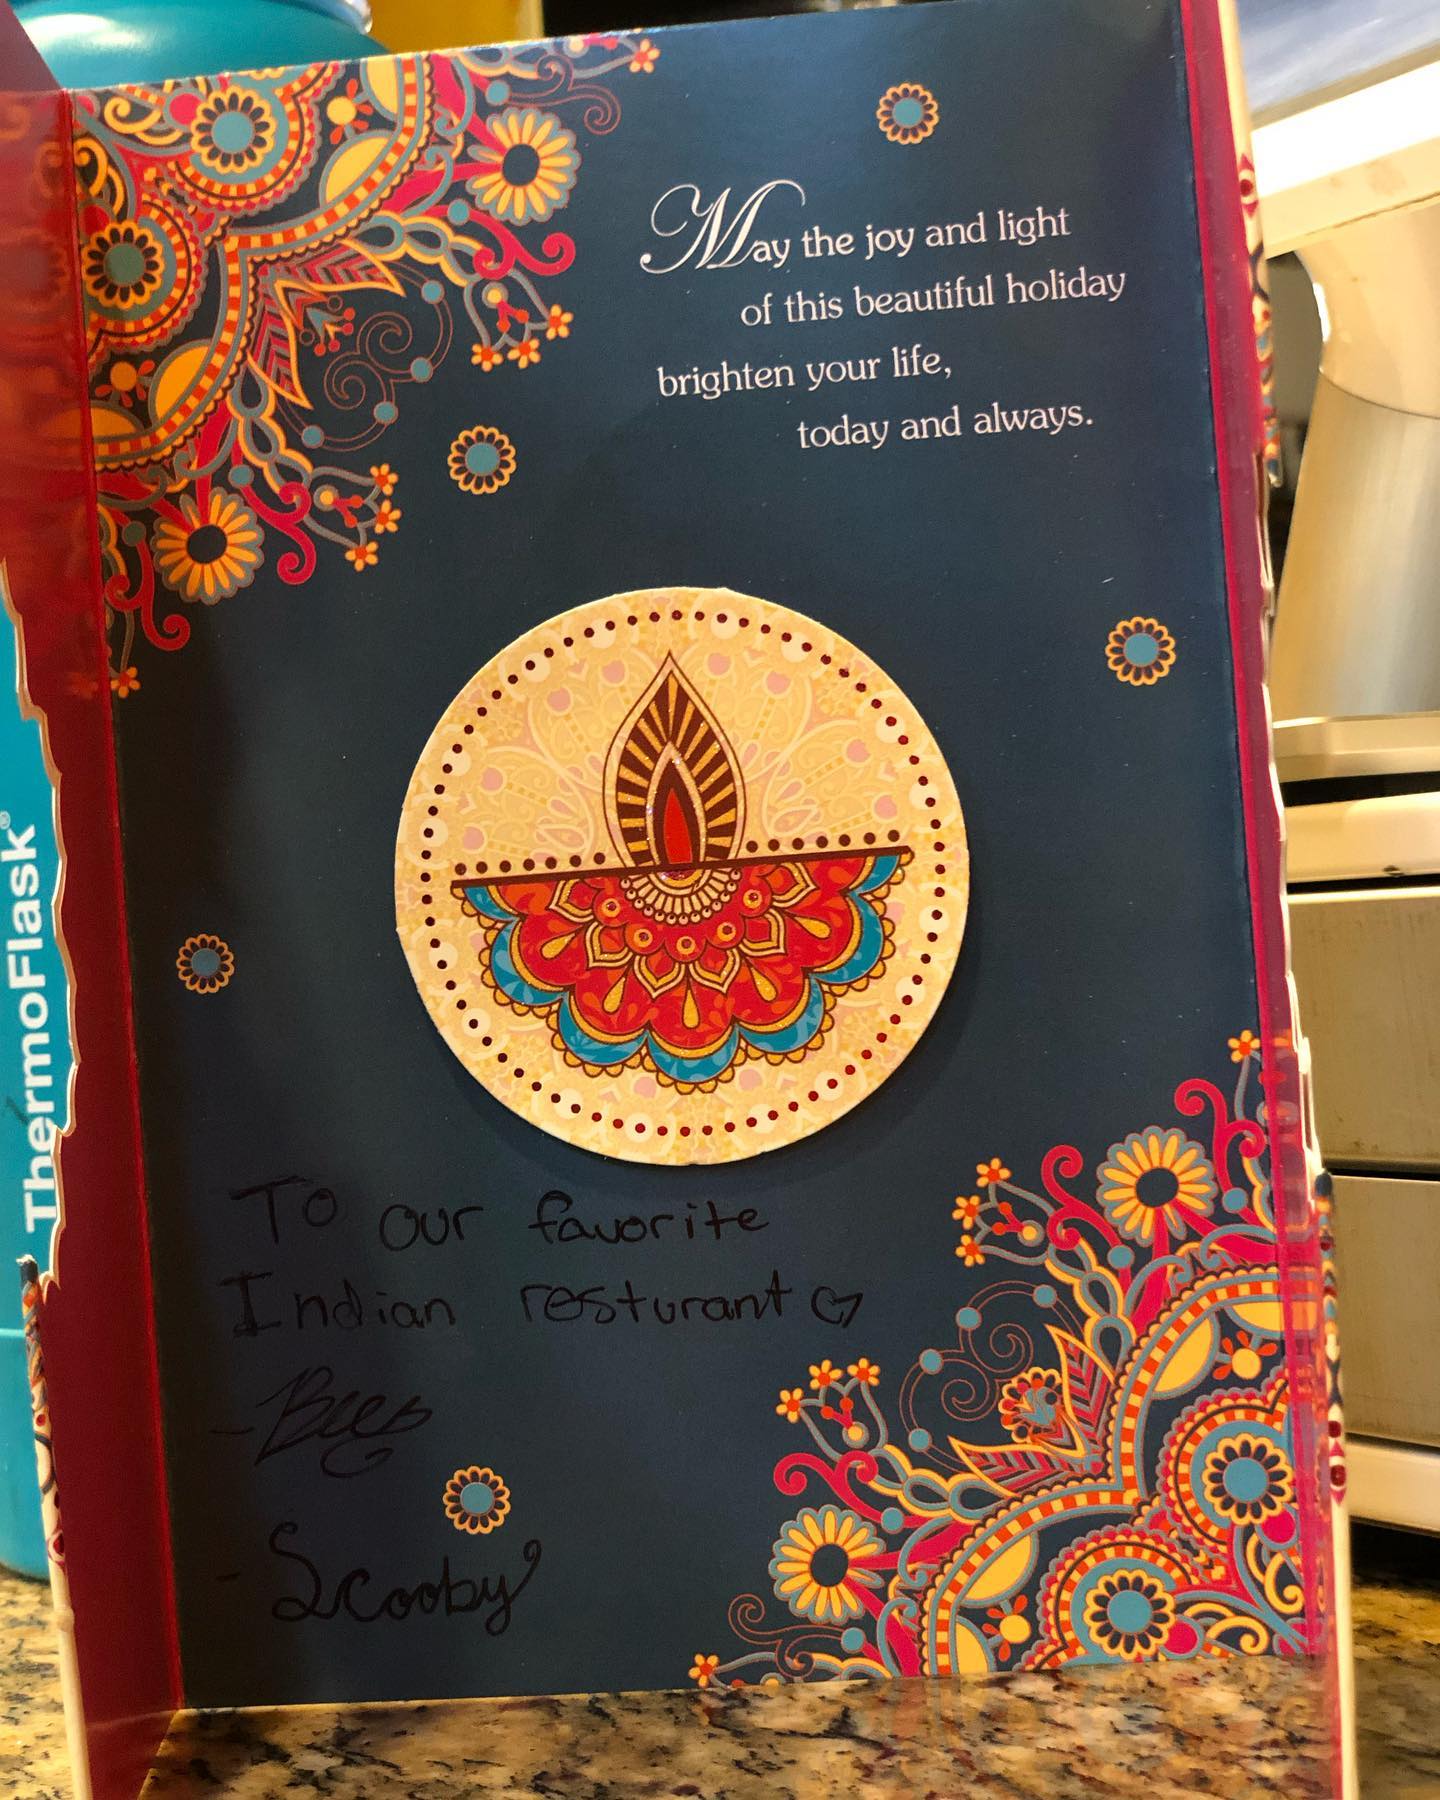 May the joy and light
of this beautiful holiday
brighten your life,
today and always.
ThermoFlask®
To our favorite
Indian resturant
- Bees
- Scooby